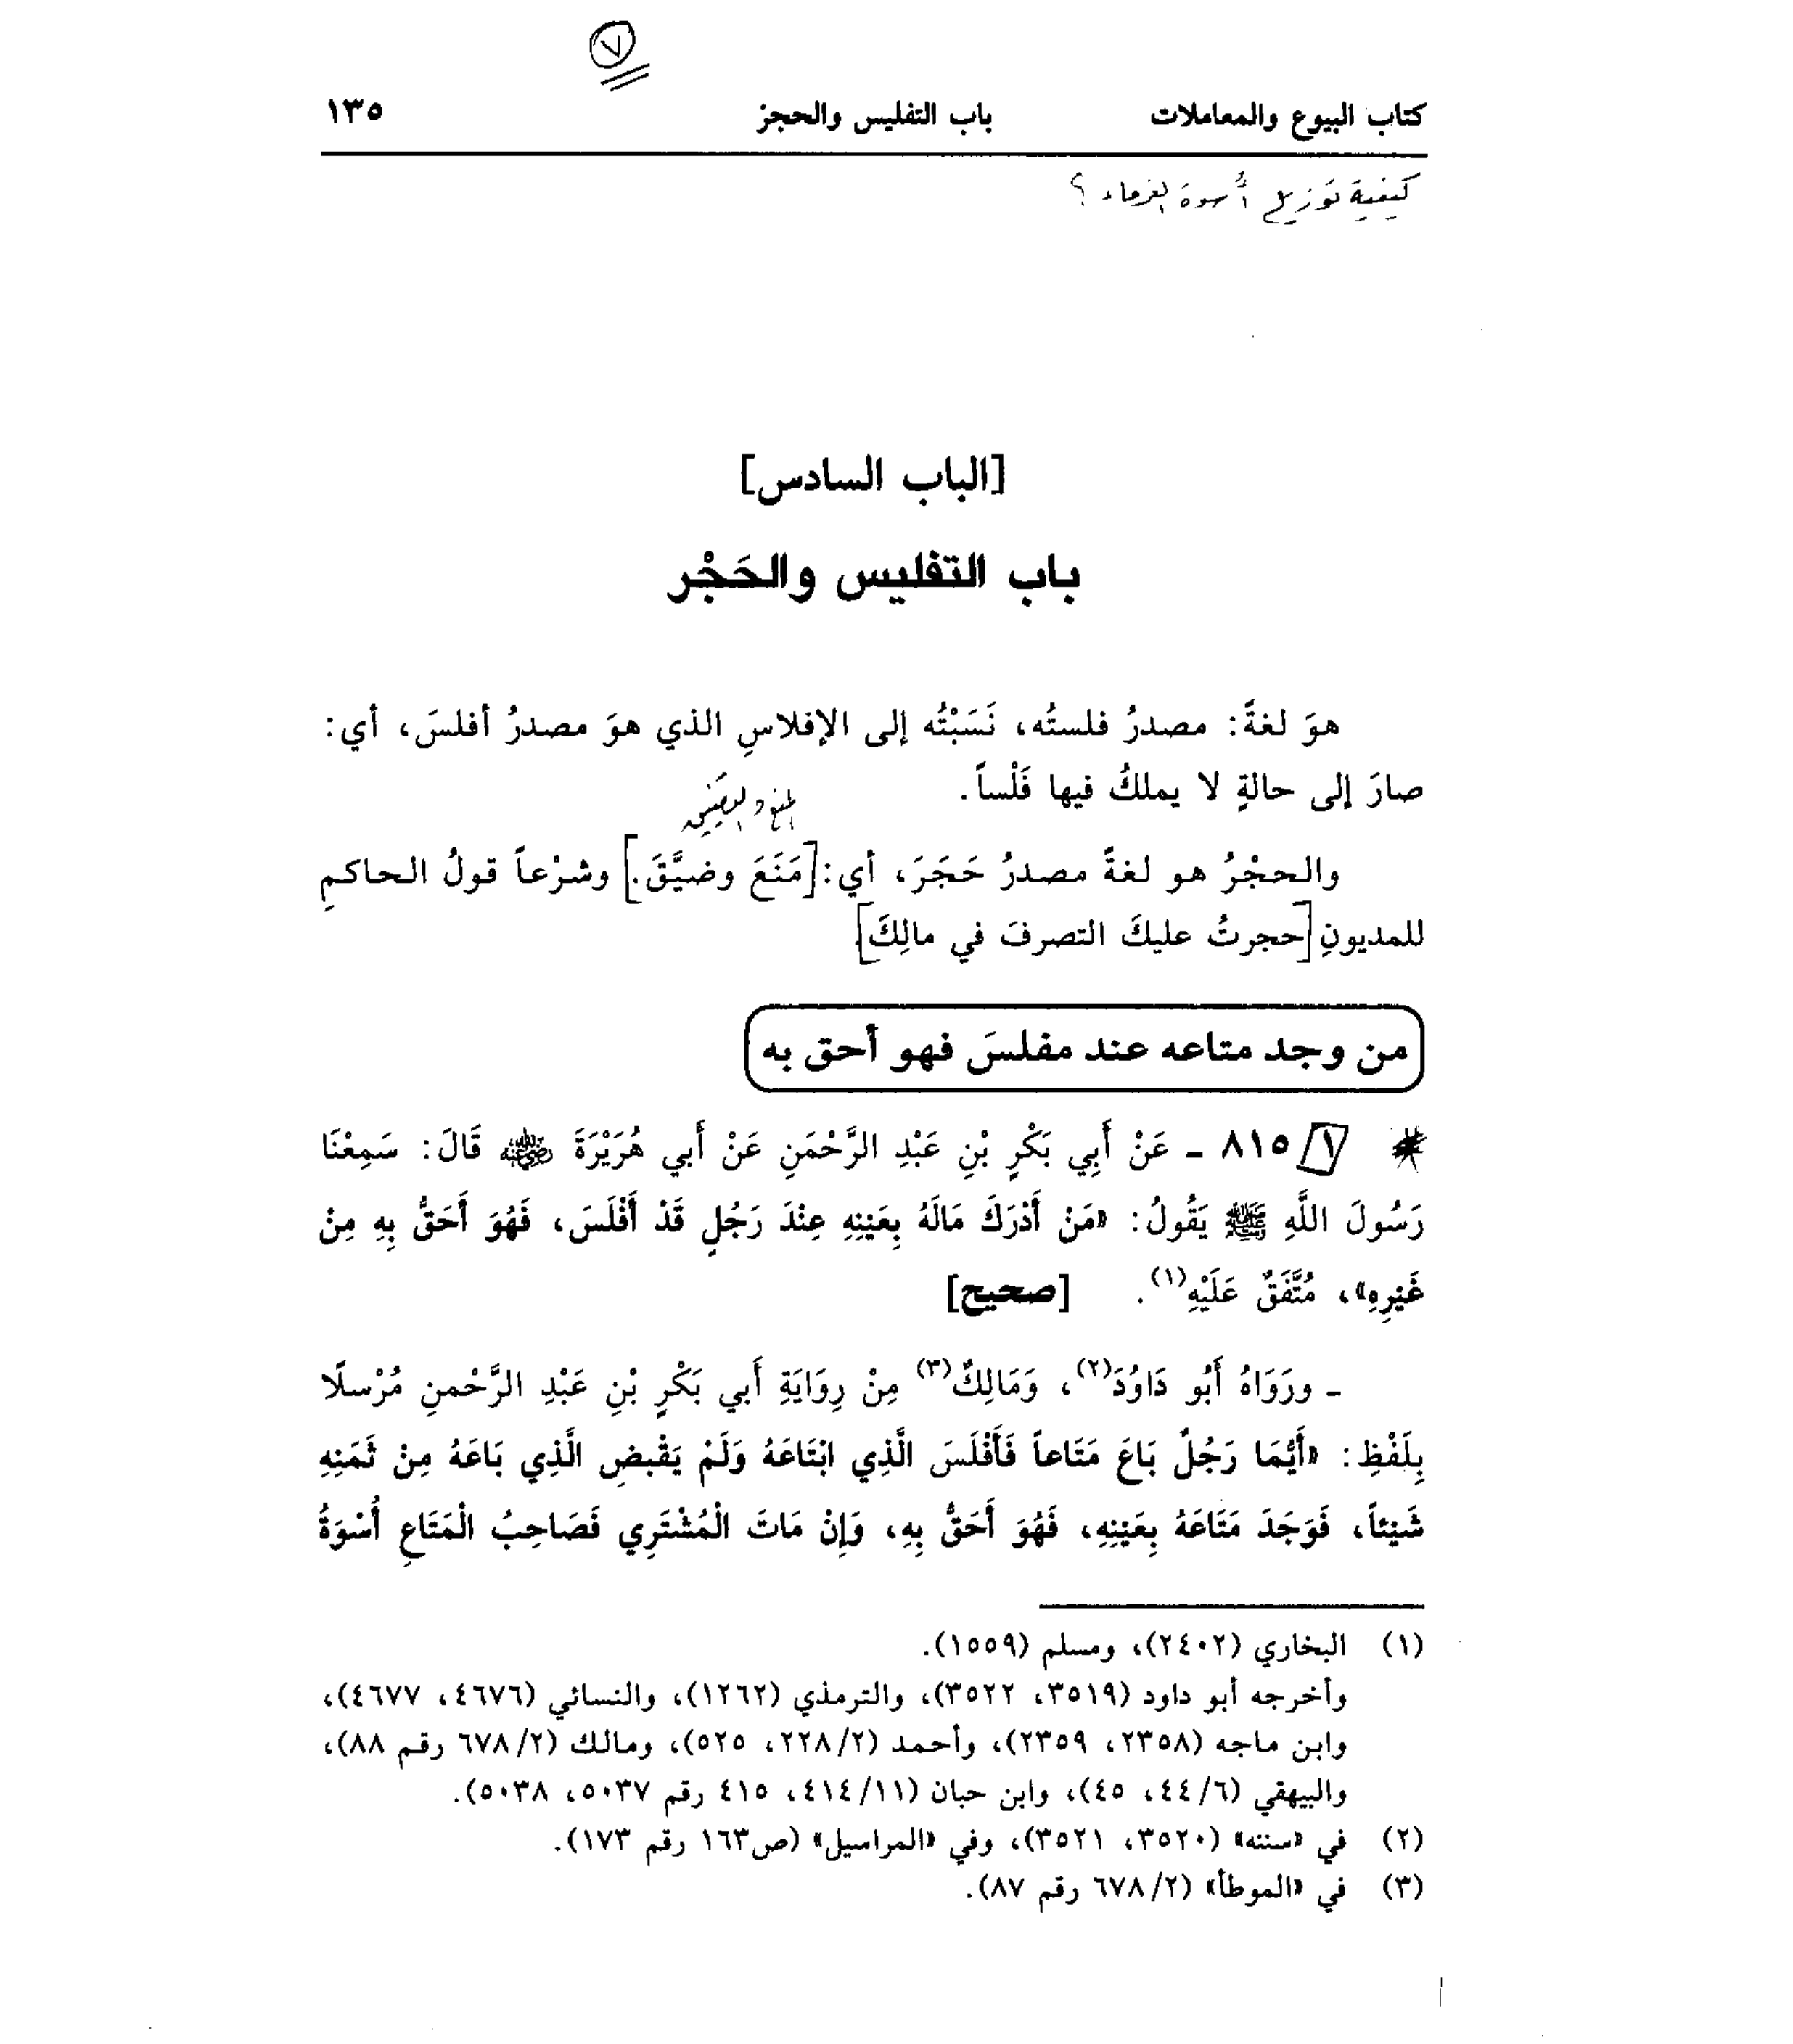 ٧
كتاب البيوع والمعاملات باب التفليس والحجز ١٣٥
كيفية توزيع أُسوة الغرماء ؟
[الباب السادس]
باب التفليس والحَجْر
هوَ لغةً: مصدرُ فلستُه، نَسَبْتُه إلى الإفلاسِ الذي هوَ مصدرُ أفلسَ، أي:
صارَ إلى حالةٍ لا يملكُ فيها فَلْساً.
المنع والتضييق
والحجْرُ هو لغةً مصدرُ حَجَرَ، أي: [مَنَعَ وضيَّقَ.] وشرْعاً قولُ الحاكمِ
للمديونِ [حجرتُ عليكَ التصرفَ في مالِكَ].
من وجد متاعه عند مفلسَ فهو أحق به
١/٨١٥ - عَنْ أَبِي بَكْرِ بْنِ عَبْدِ الرَّحْمَنِ عَنْ أَبي هُرَيْرَةَ رضي الله عنه قَالَ: سَمِعْنَا
رَسُولَ اللَّهِ ﷺ يَقُولُ: «مَنْ أَدْرَكَ مَالَهُ بِعَيْنِهِ عِنْدَ رَجُلٍ قَدْ أَفْلَسَ، فَهُوَ أَحَقُّ بِهِ مِنْ
غَيْرِهِ»، مُتَّفَقٌ عَلَيْهِ(١). [صحيح]
- ورَوَاهُ أَبُو دَاوُدَ(٢)، وَمَالِكٌ(٣) مِنْ رِوَايَةِ أَبي بَكْرِ بْنِ عَبْدِ الرَّحْمنِ مُرْسلًا
بِلَفْظِ: «أَيُّمَا رَجُلٌ بَاعَ مَتَاعاً فَأَفْلَسَ الَّذِي ابْتَاعَهُ وَلَمْ يَقْبضِ الَّذِي بَاعَهُ مِنْ ثَمَنِهِ
شَيْئاً، فَوَجَدَ مَتَاعَهُ بِعَيْنِهِ، فَهُوَ أَحَقُّ بِهِ، وَإِنْ مَاتَ الْمُشْتَرِي فَصَاحِبُ الْمَتَاعِ أُسْوَةُ
(١) البخاري (٢٤٠٢)، ومسلم (١٥٥٩).
وأخرجه أبو داود (٣٥١٩، ٣٥٢٢)، والترمذي (١٢٦٢)، والنسائي (٤٦٧٦، ٤٦٧٧)،
وابن ماجه (٢٣٥٨، ٢٣٥٩)، وأحمد (٢/٢٢٨، ٥٢٥)، ومالك (٢/٦٧٨ رقم ٨٨)،
والبيهقي (٦/٤٤، ٤٥)، وابن حبان (١١/٤١٤، ٤١٥ رقم ٥٠٣٧، ٥٠٣٨).
(٢) في «سننه» (٣٥٢٠، ٣٥٢١)، وفي «المراسيل» (ص١٦٣ رقم ١٧٣).
(٣) في «الموطأ» (٢/٦٧٨ رقم ٨٧).